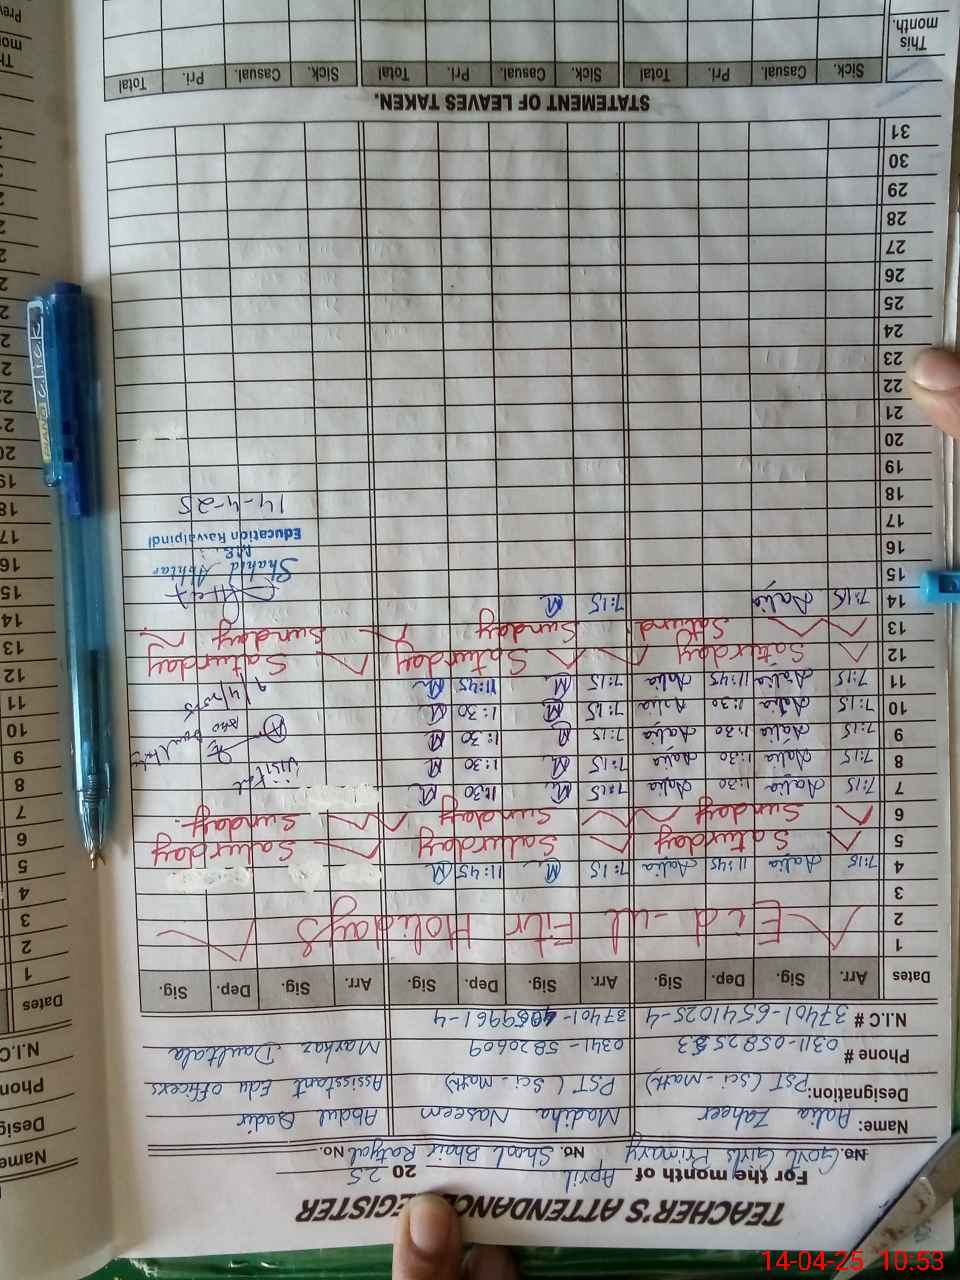 TEACHER'S ATTENDANCE REGISTER
For the month of April 2025
No. Govt Girls Primary No. School Bhair Ratyal No.
Name: Aalia Zaheer Madiha Naseem Abdul Qadir
Designation: PST (Sci - Math) PST (Sci - Math) Assisstant Edu officers
Phone # 0311-0582553 0341-5820609 Markaz Daultala
N.I.C # 37401-6541025-4 37401-4059961-4
Dates Arr. Sig. Dep. Sig. Arr. Sig. Dep. Sig. Arr. Sig. Dep. Sig.
1
2 Eid-ul Fitr Holidays
3
4 7:15 Aalia 11:45 Aalia 7:15 M 11:45 M
5 Saturday Saturday Saturday
6 Sunday Sunday Sunday
7 7:15 Aalia 01:30 Aalia 7:15 M 1:30 M visited
8 7:15 Aalia 1:30 Aalia 7:15 M 1:30 M
9 7:15 Aalia 1:30 Aalia 7:15 M 1:30 M
10 7:15 Aalia 1:30 Aalia 7:15 M 1:30 M
11 7:15 Aalia 11:45 Aalia 7:15 M 11:45 M 9/4/2025
12 Saturday Saturday Saturday
13 Saturd Sunday Sunday
14 7:15 Aalia 7:15 M
Shahid Akhtar
15
16
Education Rawalpindi
17
14-4-25
18
19
20
21
22
23
24
25
26
27
28
29
30
31
STATEMENT OF LEAVES TAKEN.
Sick. Casual. Pri. Total Sick. Casual. Pri. Total Sick. Casual. Pri. Total
This month.
PIANO click
14-04-25 10:53